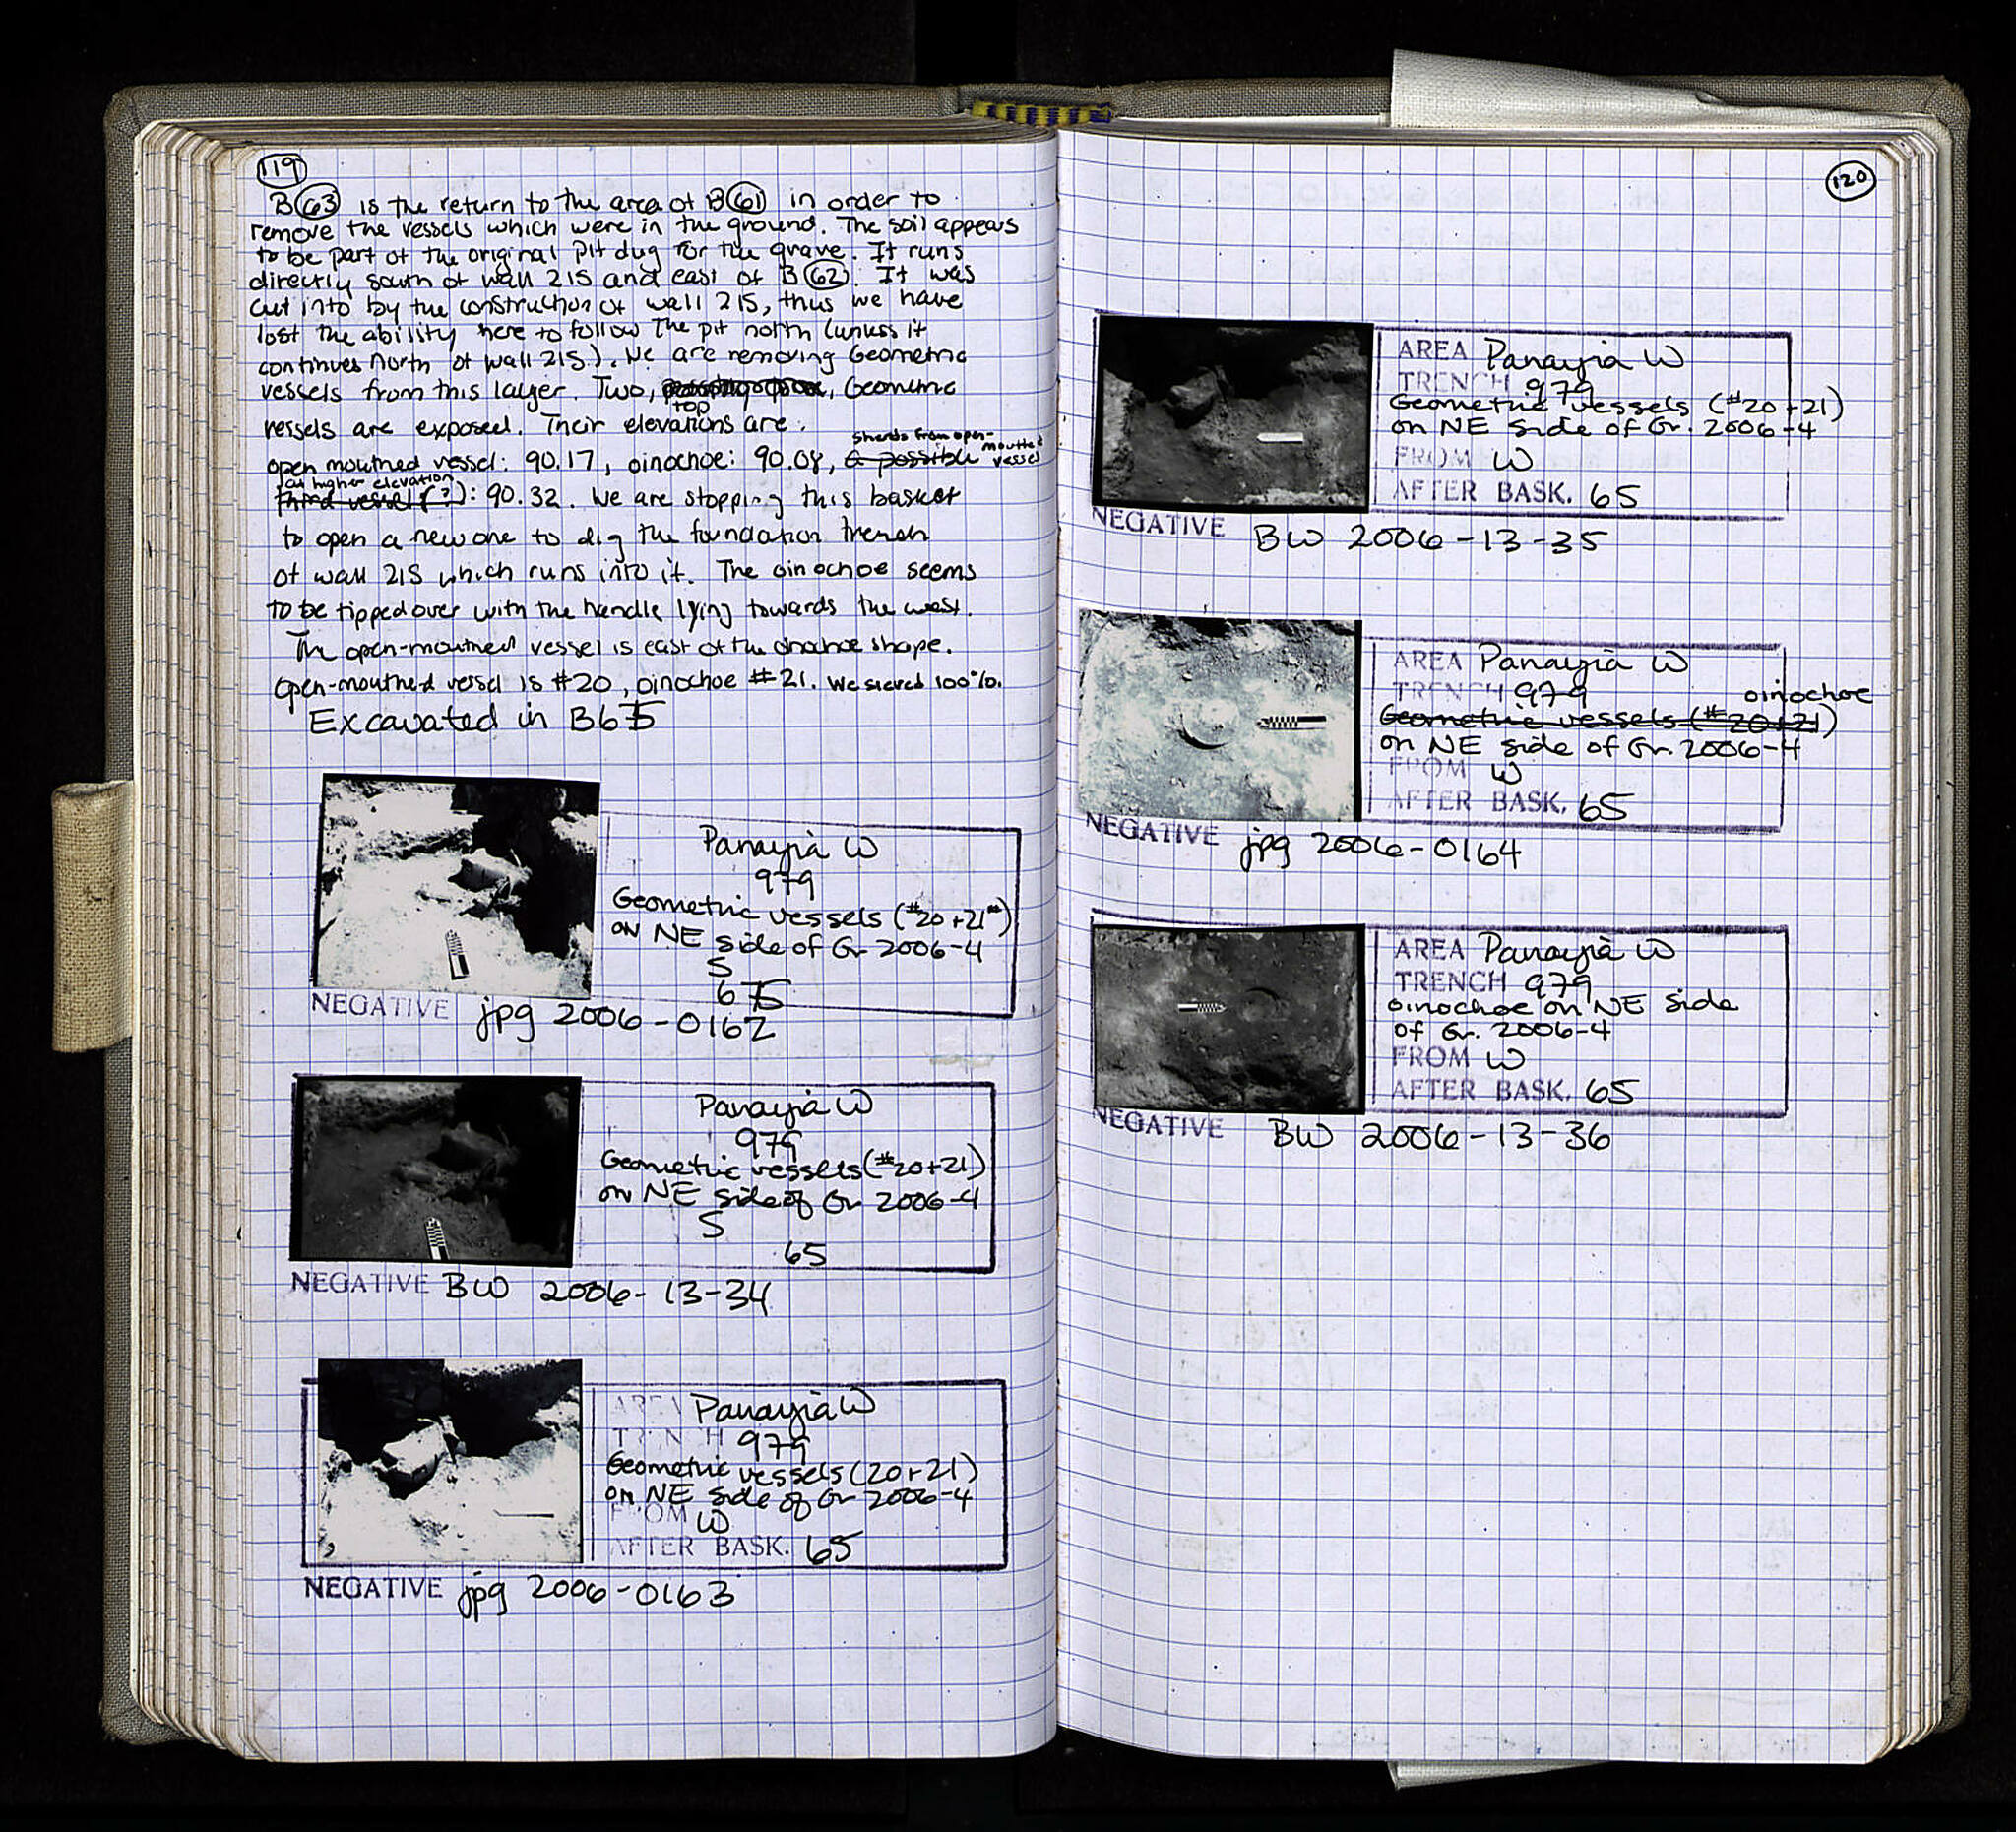 119
B(63) is the return to the area of B(61) in order to
remove the vessels which were in the ground. The soil appears
to be part of the original pit dug for the grave. It runs
directly south of wall 215 and east of B(62). It was
cut into by the construction of wall 215, thus we have
lost the ability here to follow the pit north (unless it
continues north of wall 215). We are removing Geometric
vessels from this layer. Two, Geometric
top
vessels are exposed. Their elevations are:
sherds from open-
mouthed
open mouthed vessel: 90.17, oinochoe: 90.08, a possible vessel
at higher elevation
third vessel (?): 90.32. We are stopping this basket
to open a new one to dig the foundation trench
of wall 215 which runs into it. The oinochoe seems
to be tipped over with the handle lying towards the west.
The open-mouthed vessel is east of the oinochoe shape.
open-mouthed vessel is #20, oinochoe #21. We sieved 100%.
Excavated in B65
Panayia W
979
Geometric vessels (#20+21)
on NE side of Gr 2006-4
S
65
NEGATIVE jpg 2006-0162
Panayia W
979
Geometric vessels (#20+21)
on NE side of Gr 2006-4
S
65
NEGATIVE BW 2006-13-34
AREA Panayia W
TRENCH 979
Geometric vessels (20+21)
on NE side of Gr 2006-4
FROM W
AFTER BASK. 65
NEGATIVE jpg 2006-0163
120
AREA Panayia W
TRENCH 979
Geometric vessels (#20+21)
on NE side of Gr. 2006-4
FROM W
AFTER BASK. 65
NEGATIVE BW 2006-13-35
AREA Panayia W
TRENCH 979
oinochoe
Geometric vessels (#20+21)
on NE side of Gr. 2006-4
FROM W
AFTER BASK. 65
NEGATIVE jpg 2006-0164
AREA Panayia W
TRENCH 979
oinochoe on NE side
of Gr. 2006-4
FROM W
AFTER BASK. 65
NEGATIVE BW 2006-13-36